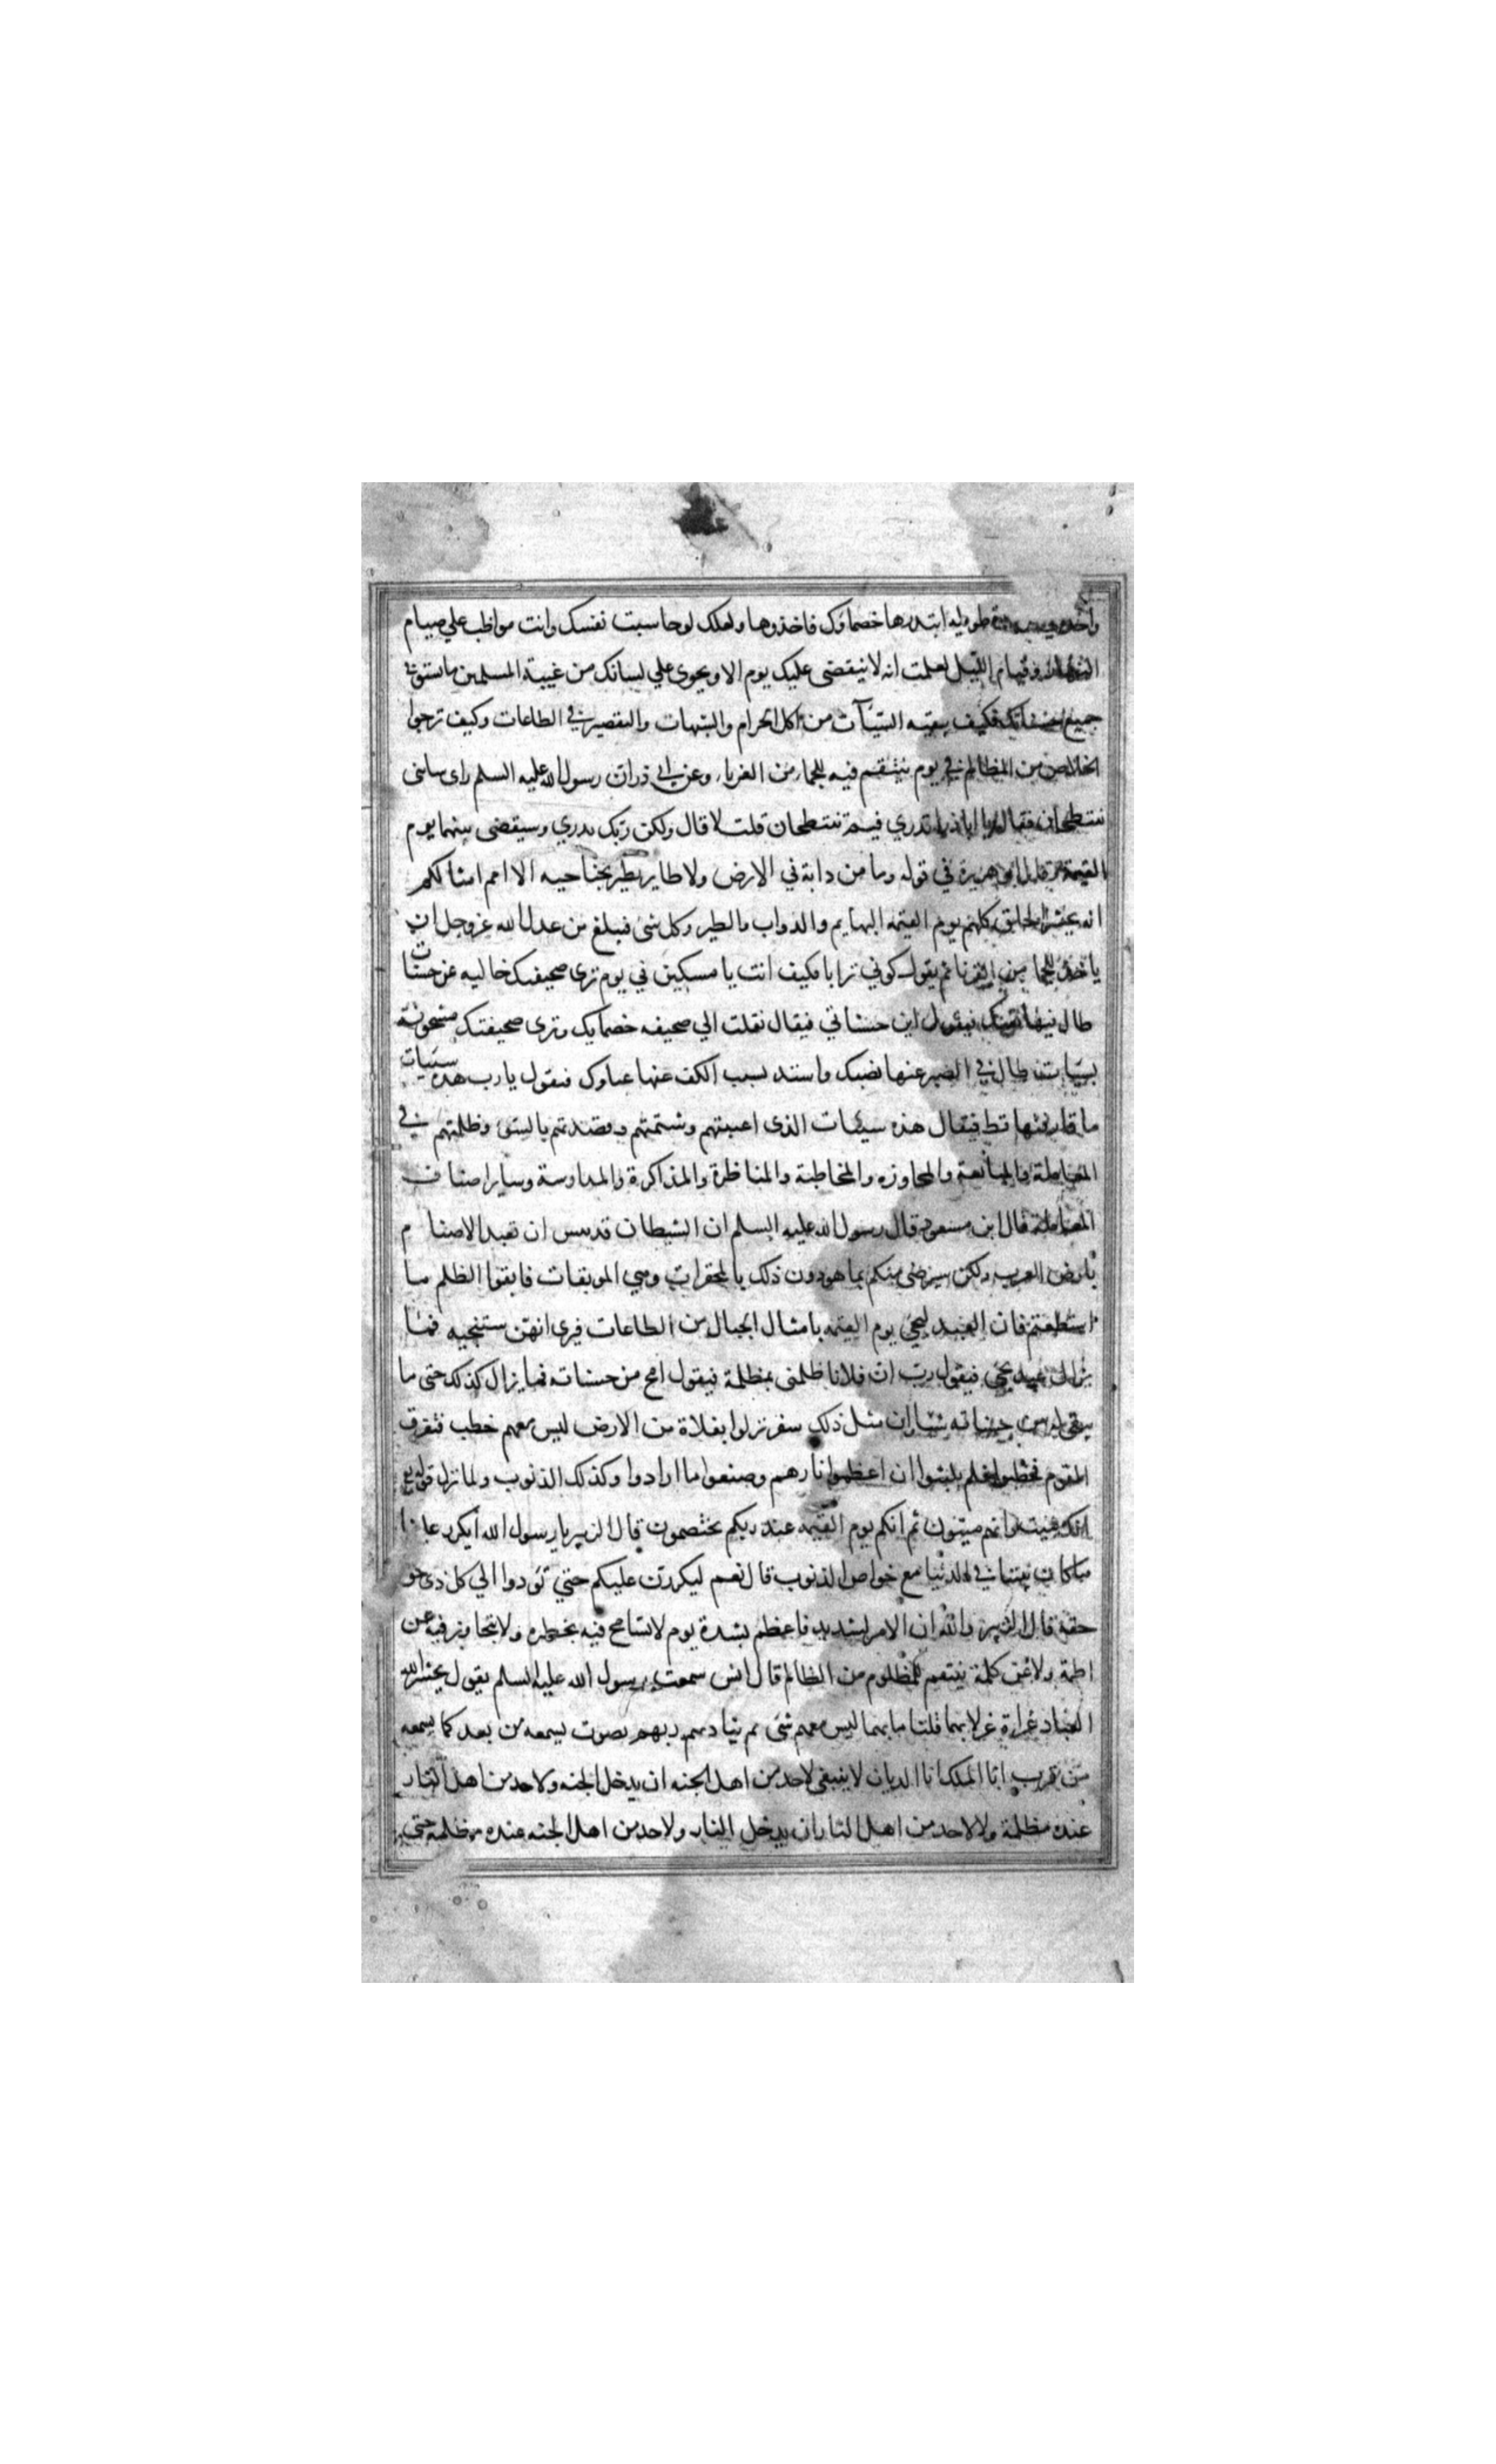 طويله ابتدرها خصماوك فاخذوها ولعلك لو حاسبت نفسك وانت مواظب علي صيام
النهار وقيام الليل لعلمت انه لا ينقضى عليك يوم الا ويجرى علي لسانك من غيبة المسلمين ما يستوفى
جميع حسناتك فكيف ببقيه السيئات من اكل الحرام والشبهات والتقصير في الطاعات وكيف ترجوا
الخلاص من المظالم في يوم يقتص فيه للجما من القرنا وعن ابي ذر ان رسول الله عليه السلم راى شاتين
تنتطحان فقال يا ابا ذر اتدري فيم تنتطحان قلت لا قال ولكن ربك يدري وسيقضى بينهما يوم
القيمة وقال ابو هريرة في قوله وما من دابة في الارض ولا طاير يطير بجناحيه الا امم امثالكم
انه يحشر الخلق كلهم يوم القيمه البهايم والدواب والطير وكل شى فيبلغ من عدل الله عز وجل ان
ياخذ للجما من القرنا ثم يقول كوني ترابا فكيف انت يا مسكين في يوم ترى صحيفتك خاليه عن حسنات
طال فيها تعبك فيقول اين حسناتي فيقال نقلت الي صحيفه خصمايك وترى صحيفتك مشحونة
بسيات طال في الصبر عنها نصبك واشتد بسبب الكف عنها عناوك فيقول يا رب هذه سيئات
ما قارفتها قط فيقال هذه سيئات الذى اغتبتهم وشتمتهم وقصدتهم بالسوء وظلمتهم في
المعاملة والمبايعة والمجاوزه والمخاطبة والمناظرة والمذاكرة والمدارسة وساير اصناف
المعاملة قال ابن مسعود قال رسول الله عليه السلم ان الشيطان قد يئس ان تعبد الاصنام
بارض العرب ولكن سيرضى منكم بما هو دون ذلك بالمحقرات وهي الموبقات فاتقوا الظلم ما
استطعتم فان العبد ليجي يوم القيمه بامثال الجبال من الطاعات فيرى انهن ستنجيه فما
يزال عبد يجي فيقول رب ان فلانا ظلمنى بمظلمة فيقول امح من حسناته فما يزال كذلك حتى ما
يبقى له من حسناته شيا ان مثل ذلك سفر نزلوا بفلاة من الارض ليس معهم حطب فتفرق
القوم فحطبوا فلم يلبثوا ان اعظموا نارهم وصنعوا ما ارادوا وكذلك الذنوب ولما نزل قوله تع
انك ميت وانهم ميتون ثم انكم يوم القيمه عند ربكم تختصمون قال الزبير يا رسول الله ايكرر علينا
ما كان بيننا في الدنيا مع خواص الذنوب قال نعم ليكررن عليكم حتي تودوا الي كل ذى حق
حقه قال الزبير والله ان الامر لشديد فاعظم بشدة يوم لا يتسامح فيه بخطوه ولا يتجاوز فيه عن
لطمة ولا عن كلمة ينتقم للمظلوم من الظالم قال انس سمعت رسول الله عليه السلم يقول يحشر الله
العباد عراة غرلا بهما قلنا ما بهما ليس معهم شى ثم يناديهم ربهم بصوت يسمعه من بعد كما يسمعه
من قرب انا الملك انا الديان لا ينبغى لاحد من اهل الجنه ان يدخل الجنه ولاحد من اهل النار
عنده مظلمة ولا لاحد من اهل النار ان يدخل النار ولاحد من اهل الجنه عنده مظلمه حتى